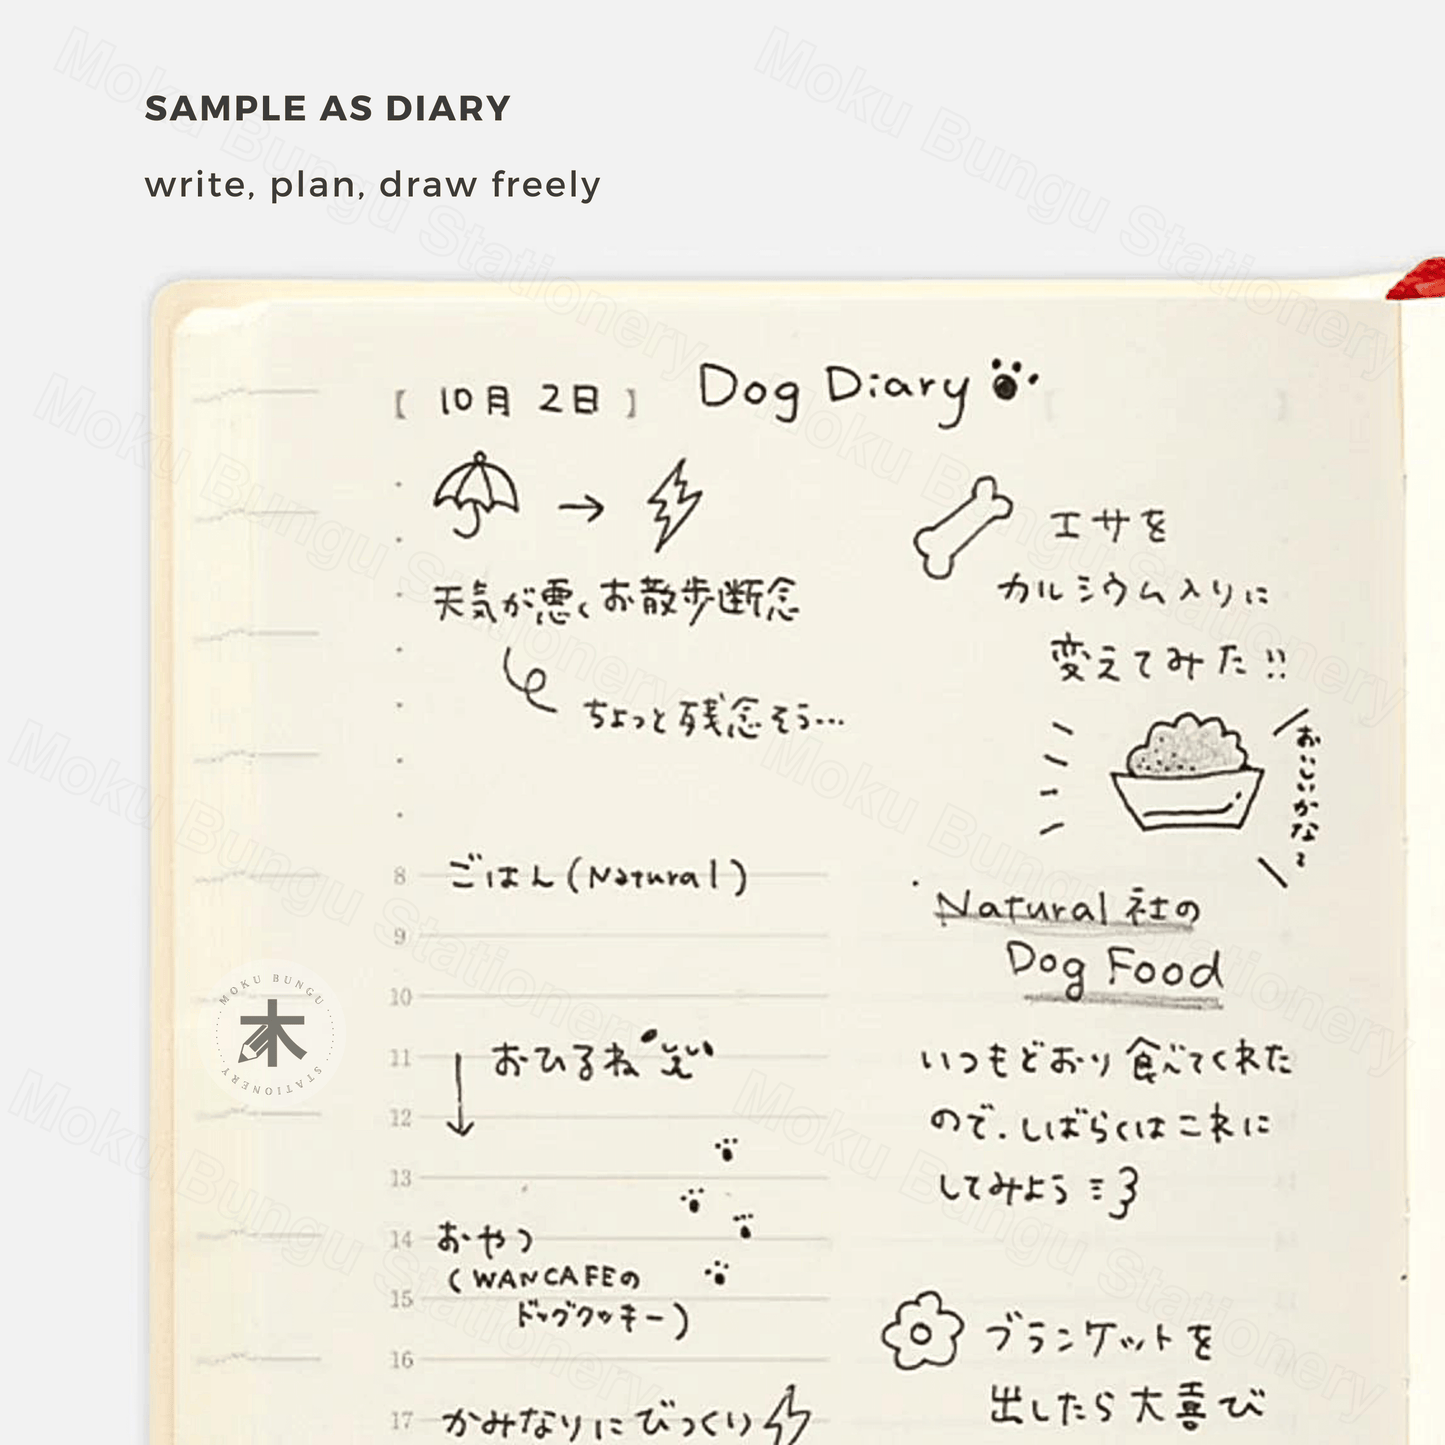 SAMPLE AS DIARY
write, plan, draw freely
[ 10月 2日 ] Dog Diary
天気が悪くお散歩断念
ちょっと残念そう…
8 ごはん(Natural)
9
10
11 おひるね
12
13
14 おやつ
(WANCAFEの
15 ドッグクッキー)
16
17 かみなりにびっくり
エサを
カルシウム入りに
変えてみた!!
おいしいかな?
Natural社の
Dog Food
いつもどおり食べてくれた
ので.しばらくはこれに
してみよう
ブランケットを
出したら大喜び
MOKU BUNGU
木
STATIONERY
Moku Bungu Stationery
Moku Bungu Stationery
Moku Bungu Stationery
Moku Bungu Stationery
Moku Bungu Stationery
Moku Bungu Stationery
Moku Bungu Stationery
Moku Bungu Stationery